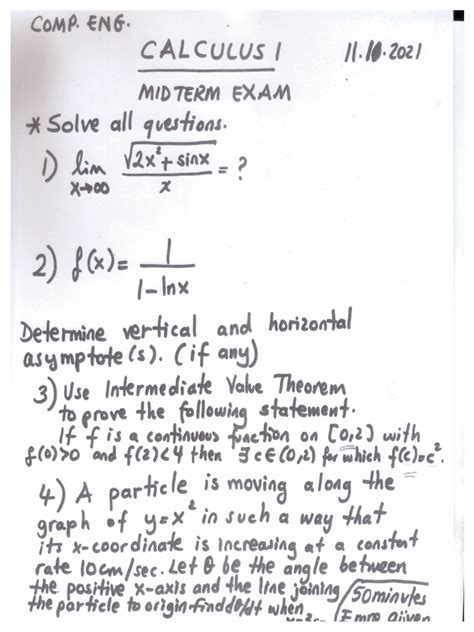 COMP. ENG.
CALCULUS 1 11.10.2021
MIDTERM EXAM
* Solve all questions.
1) lim x→∞ √(2x²+sinx) / x = ?
2) f(x)= 1 / 1-lnx
Determine vertical and horizontal
asymptote(s). (if any)
3) Use Intermediate Value Theorem
to prove the following statement.
If f is a continuous function on [0,2] with
f(0)>0 and f(2)<4 then ∃ c∈(0,2) for which f(c)=c².
4) A particle is moving along the
graph of y=x² in such a way that
its x-coordinate is increasing at a constant
rate 10cm/sec. Let θ be the angle between
the positive x-axis and the line joining 50 minutes
the particle to origin. find dθ/dt when